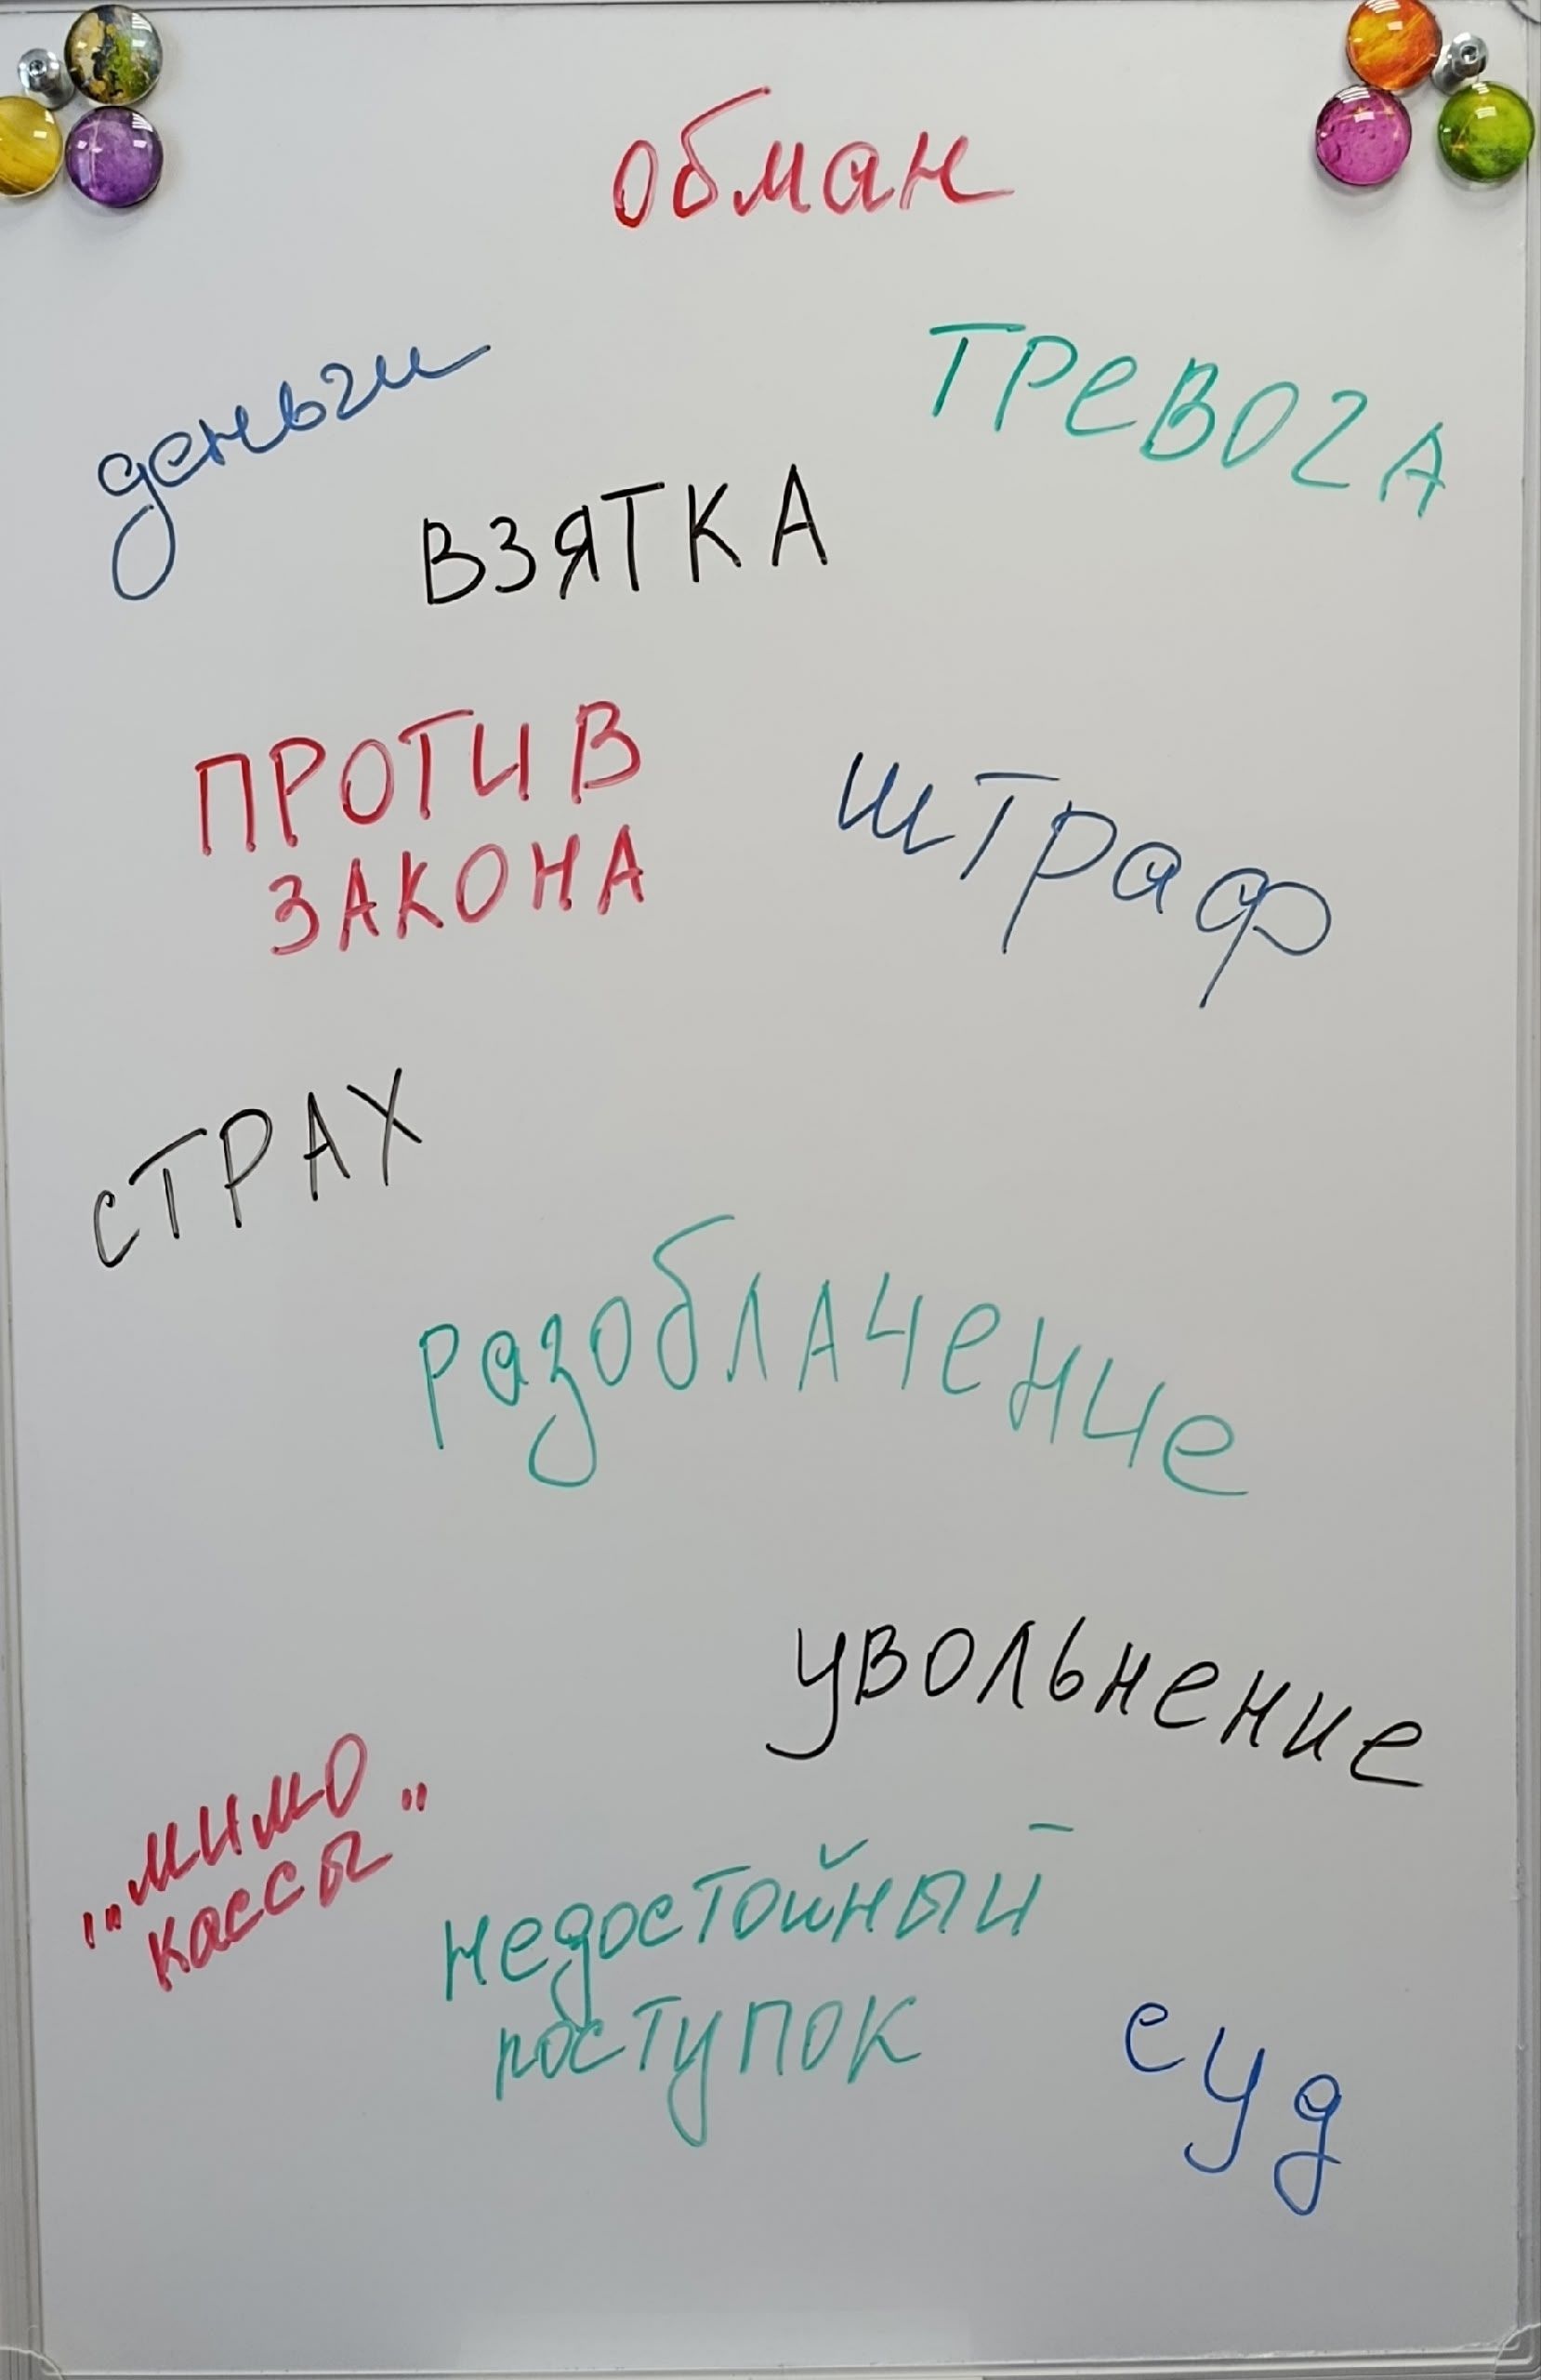 обман
деньги
ТРЕВОГА
ВЗЯТКА
ПРОТИВ
ЗАКОНА
штраф
СТРАХ
разоблачение
увольнение
"мимо
кассы"
недостойный
поступок
суд